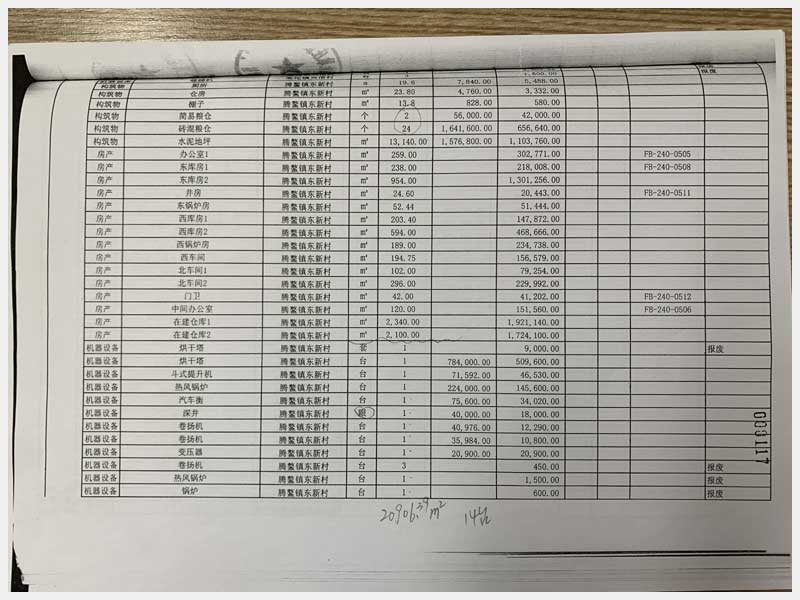 构筑物 厕所 腾鳌镇东新村 19.6 7,840.00 5,488.00
构筑物 仓房 腾鳌镇东新村 m² 23.80 4,760.00 3,332.00
构筑物 棚子 腾鳌镇东新村 m² 13.8 828.00 580.00
构筑物 简易粮仓 腾鳌镇东新村 个 2 56,000.00 42,000.00
构筑物 砖混粮仓 腾鳌镇东新村 个 24 1,641,600.00 656,640.00
构筑物 水泥地坪 腾鳌镇东新村 m² 13,140.00 1,576,800.00 1,103,760.00
房产 办公室1 腾鳌镇东新村 m² 259.00 302,771.00 FB-240-0505
房产 东库房1 腾鳌镇东新村 m² 238.00 218,008.00 FB-240-0508
房产 东库房2 腾鳌镇东新村 m² 954.00 1,301,256.00
房产 井房 腾鳌镇东新村 m² 24.60 20,443.00 FB-240-0511
房产 东锅炉房 腾鳌镇东新村 m² 52.44 51,444.00
房产 西库房1 腾鳌镇东新村 m² 203.40 147,872.00
房产 西库房2 腾鳌镇东新村 m² 594.00 468,666.00
房产 西锅炉房 腾鳌镇东新村 m² 189.00 234,738.00
房产 西车间 腾鳌镇东新村 m² 194.75 156,579.00
房产 北车间1 腾鳌镇东新村 m² 102.00 79,254.00
房产 北车间2 腾鳌镇东新村 m² 296.00 229,992.00
房产 门卫 腾鳌镇东新村 m² 42.00 41,202.00 FB-240-0512
房产 中间办公室 腾鳌镇东新村 m² 120.00 151,560.00 FB-240-0506
房产 在建仓库1 腾鳌镇东新村 m² 2,340.00 1,921,140.00
房产 在建仓库2 腾鳌镇东新村 m² 2,100.00 1,724,100.00
机器设备 烘干塔 腾鳌镇东新村 套 1 9,000.00 报废
机器设备 烘干塔 腾鳌镇东新村 台 1 784,000.00 509,600.00
机器设备 斗式提升机 腾鳌镇东新村 台 1 71,592.00 46,530.00
机器设备 热风锅炉 腾鳌镇东新村 台 1 224,000.00 145,600.00
机器设备 汽车衡 腾鳌镇东新村 台 1 75,600.00 34,020.00
机器设备 深井 腾鳌镇东新村 眼 1 40,000.00 18,000.00
机器设备 卷扬机 腾鳌镇东新村 台 1 40,976.00 12,290.00
机器设备 卷扬机 腾鳌镇东新村 台 1 35,984.00 10,800.00
机器设备 变压器 腾鳌镇东新村 台 1 20,900.00 20,900.00
机器设备 卷扬机 腾鳌镇东新村 台 3 450.00 报废
机器设备 热风锅炉 腾鳌镇东新村 台 1 1,500.00 报废
机器设备 锅炉 腾鳌镇东新村 台 1 600.00 报废
20906.39m² 14台
000117